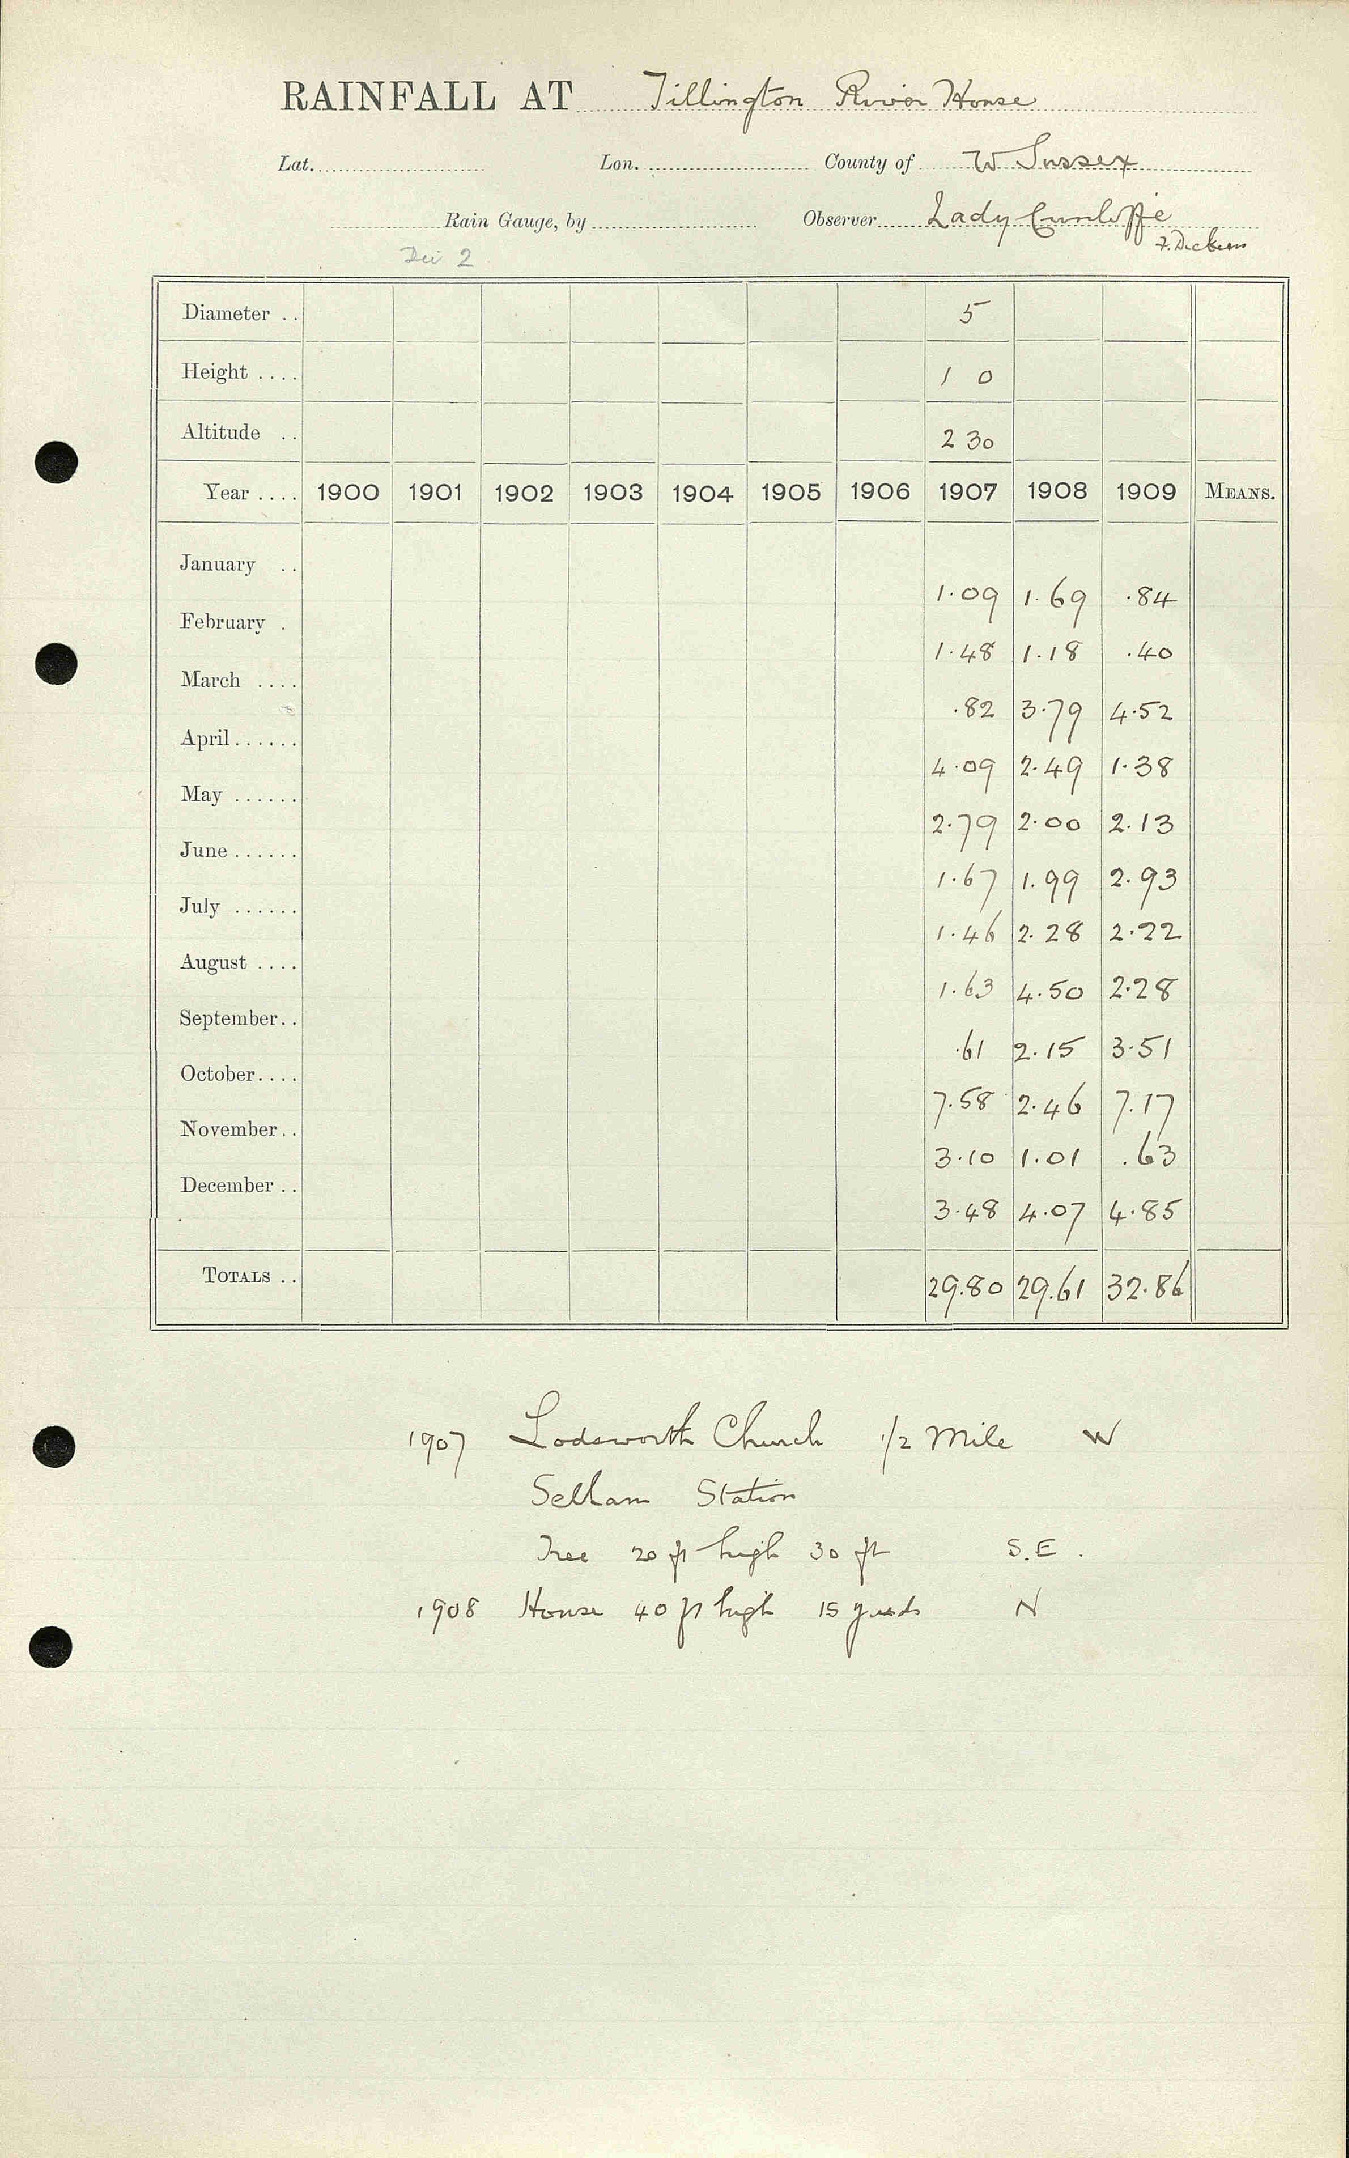 RAINFALL AT Tillington River House
Lat. Lon. County of W Sussex
Rain Gauge, by Observer Lady Cunliffe
F. Dickens
Diameter .. 5
Height .... 1 0
Altitude .. 230
Year .... 1900 1901 1902 1903 1904 1905 1906 1907 1908 1909 MEANS.
January .. 1.09 1.69 .84
February . 1.48 1.18 .40
March .... .82 3.79 4.52
April...... 4.09 2.49 1.38
May ...... 2.79 2.00 2.13
June...... 1.67 1.99 2.93
July ...... 1.46 2.28 2.22
August .... 1.63 4.50 2.28
September.. .61 2.15 3.51
October.... 7.58 2.46 7.17
November.. 3.10 1.01 .63
December .. 3.48 4.07 4.85
TOTALS .. 29.80 29.61 32.86
1907 Lodsworth Church 1/2 Mile W
Selham Station
Tree 20 ft high 30 ft S.E.
1908 House 40 ft high 15 yards N